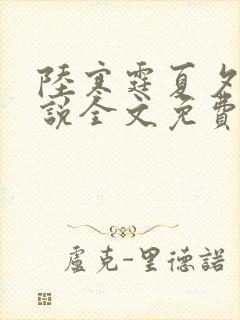 陸寒霆夏夕
說全文免費
盧克-里德諾